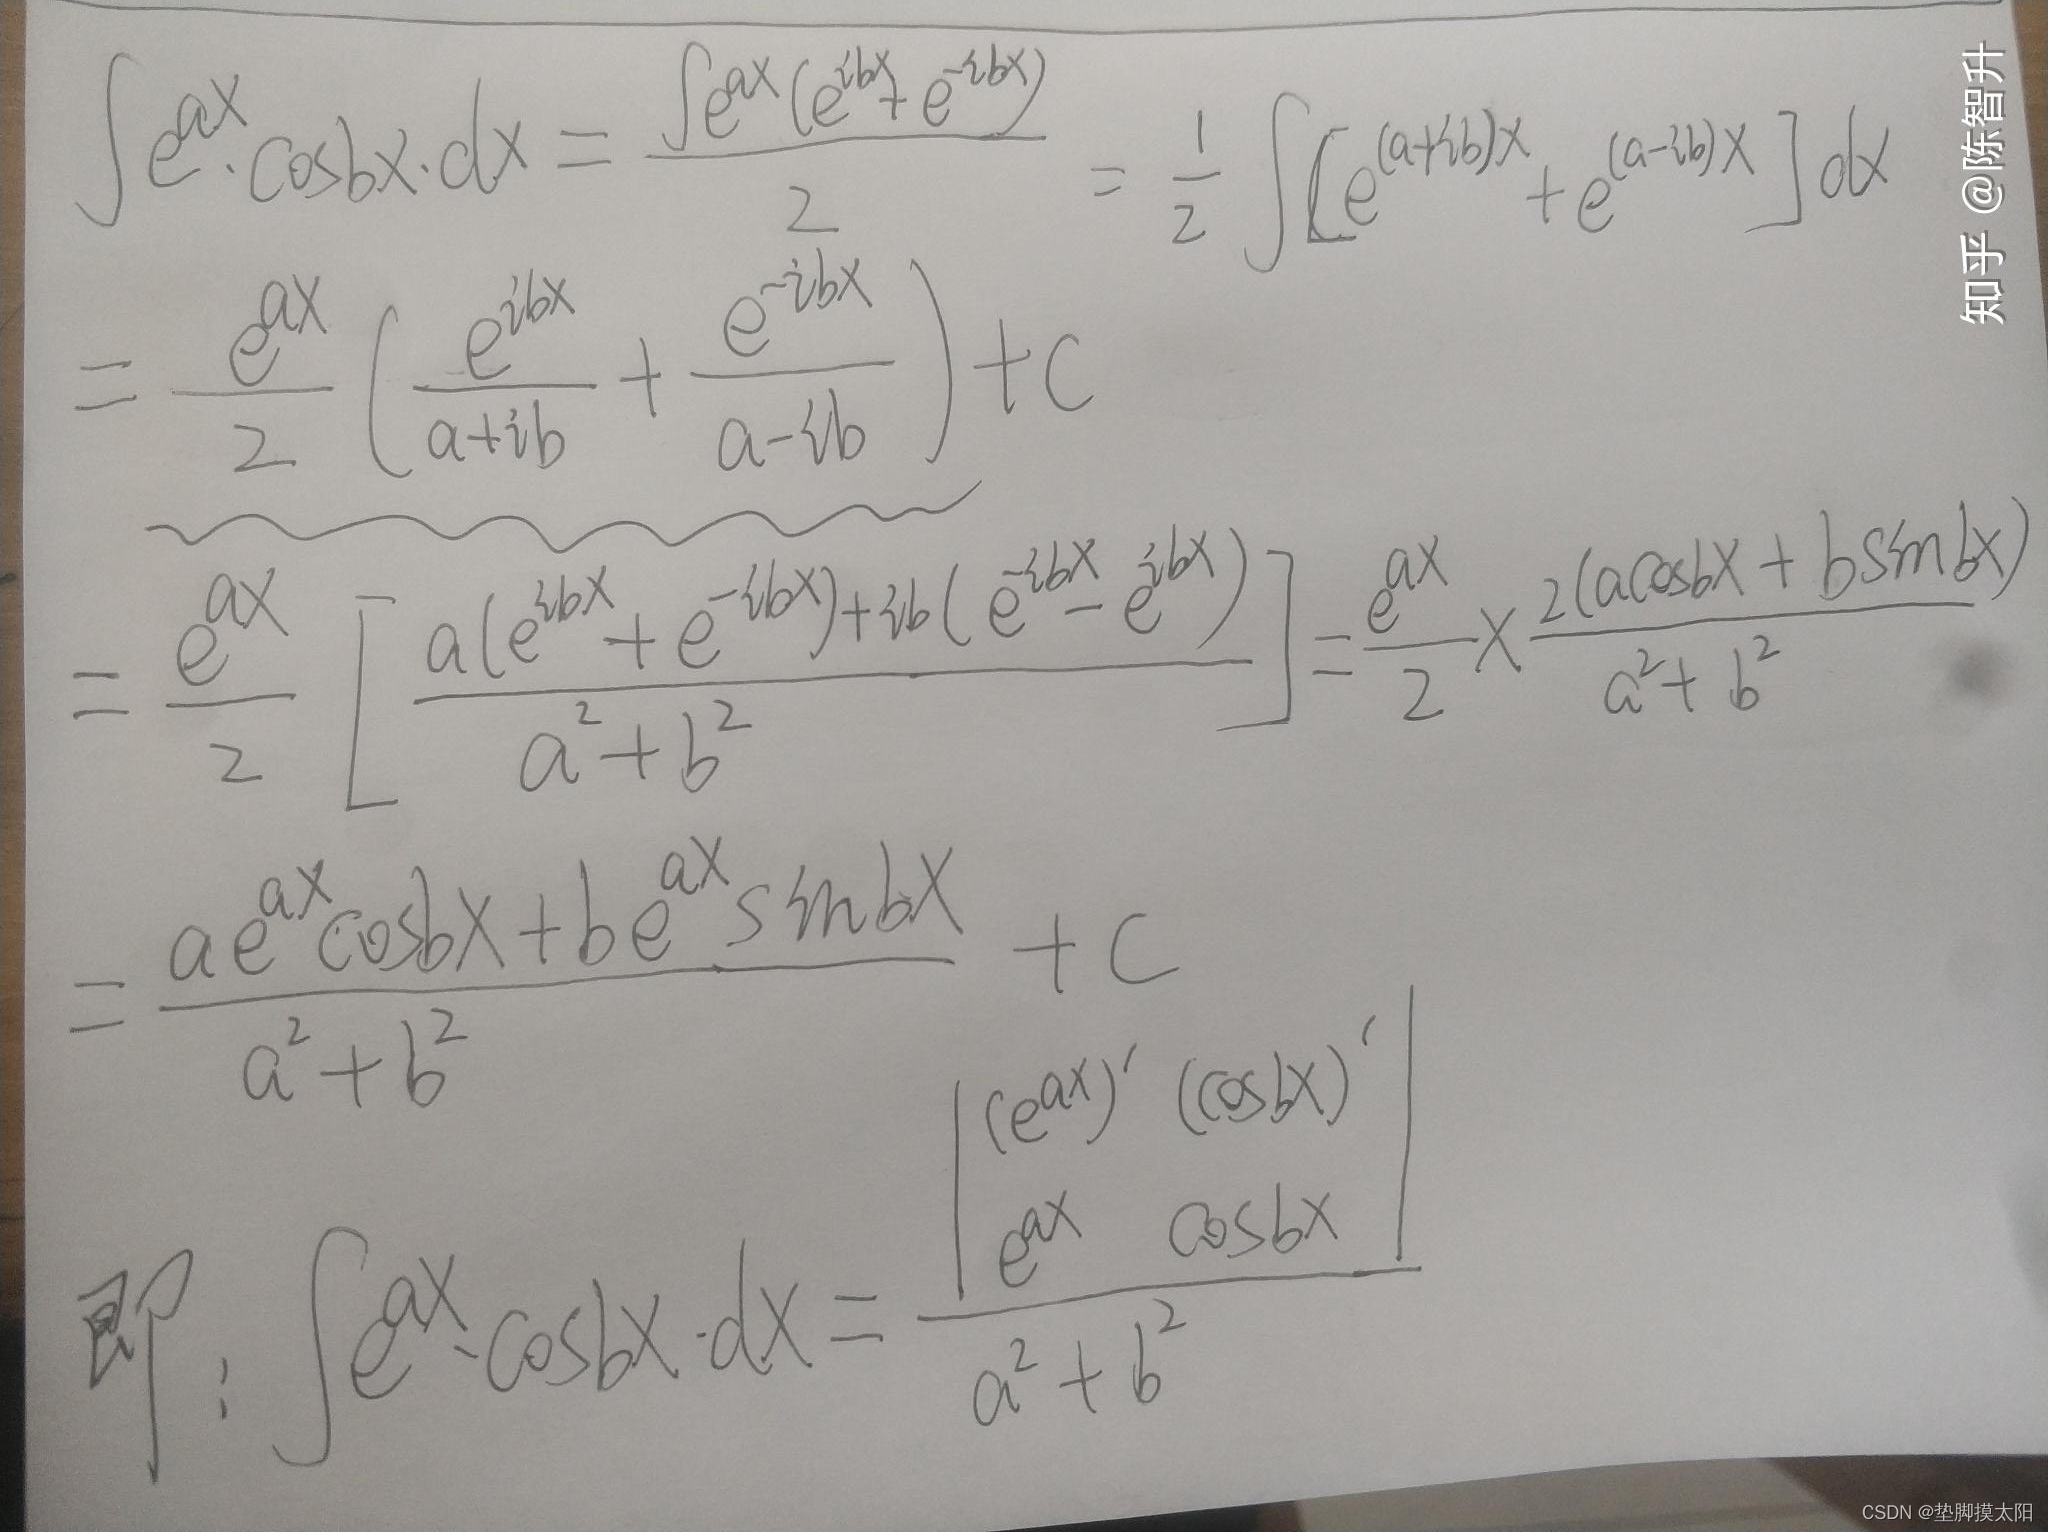 ∫e^{ax}·cosbx·dx = \frac{∫e^{ax}(e^{ibx}+e^{-ibx})}{2} = \frac{1}{2}∫[e^{(a+ib)x}+e^{(a-ib)x}]dx
= \frac{e^{ax}}{2}(\frac{e^{ibx}}{a+ib}+\frac{e^{-ibx}}{a-ib})+C
= \frac{e^{ax}}{2}[\frac{a(e^{ibx}+e^{-ibx})+ib(e^{-ibx}-e^{ibx})}{a^2+b^2}] = \frac{e^{ax}}{2}×\frac{2(acosbx+bsinbx)}{a^2+b^2}
= \frac{ae^{ax}cosbx+be^{ax}sinbx}{a^2+b^2}+C
即:∫e^{ax}·cosbx·dx = \frac{\begin{vmatrix}(e^{ax})' & (cosbx)' \\ e^{ax} & cosbx\end{vmatrix}}{a^2+b^2}
知乎 @陈智升
CSDN @垫脚摸太阳